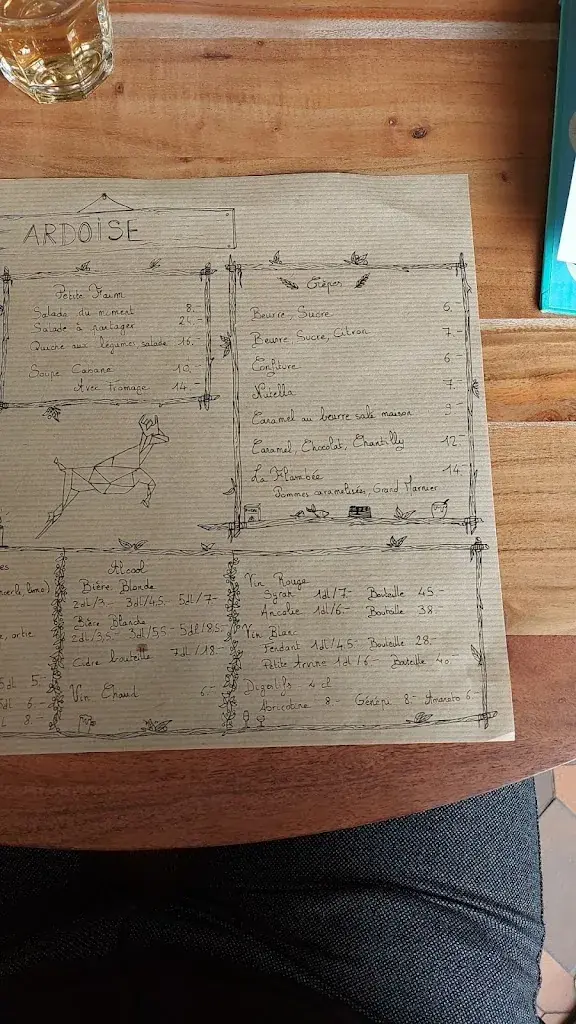 ARDOISE
Petite Faim
Salade du moment 8.-
Salade à partager 24.-
Quiche aux légumes, salade 16.-
Soupe Cabane 10.-
Avec Fromage 14.-
Crêpes
Beurre, Sucre 6.-
Beurre, Sucre, Citron 7.-
Confiture 6.-
Nutella 7.-
Caramel au beurre salé maison 9.-
Caramel, Chocolat, Chantilly 12.-
La Flambée 14.-
Pommes caramélisées, Grand Marnier
Alcool
Bière Blonde
2dl/3.- 3dl/4.5.- 5dl/7.-
Bière Blanche
2dl/3.5.- 3dl/5.5.- 5dl/8.5.-
Cidre bouteille 7dl/18.-
Vin Chaud 6.-
5.-
6.-
8.-
Vin Rouge
Syrah 1dl/7.- Bouteille 45.-
Ancolie 1dl/6.- Bouteille 38.-
Vin Blanc
Fendant 1dl/4.5 Bouteille 28.-
Petite Arvine 1dl/6.- Bouteille 40.-
Digestifs 2 cl
Abricotine 8.- Génépi 8.- Amaretto 6.-